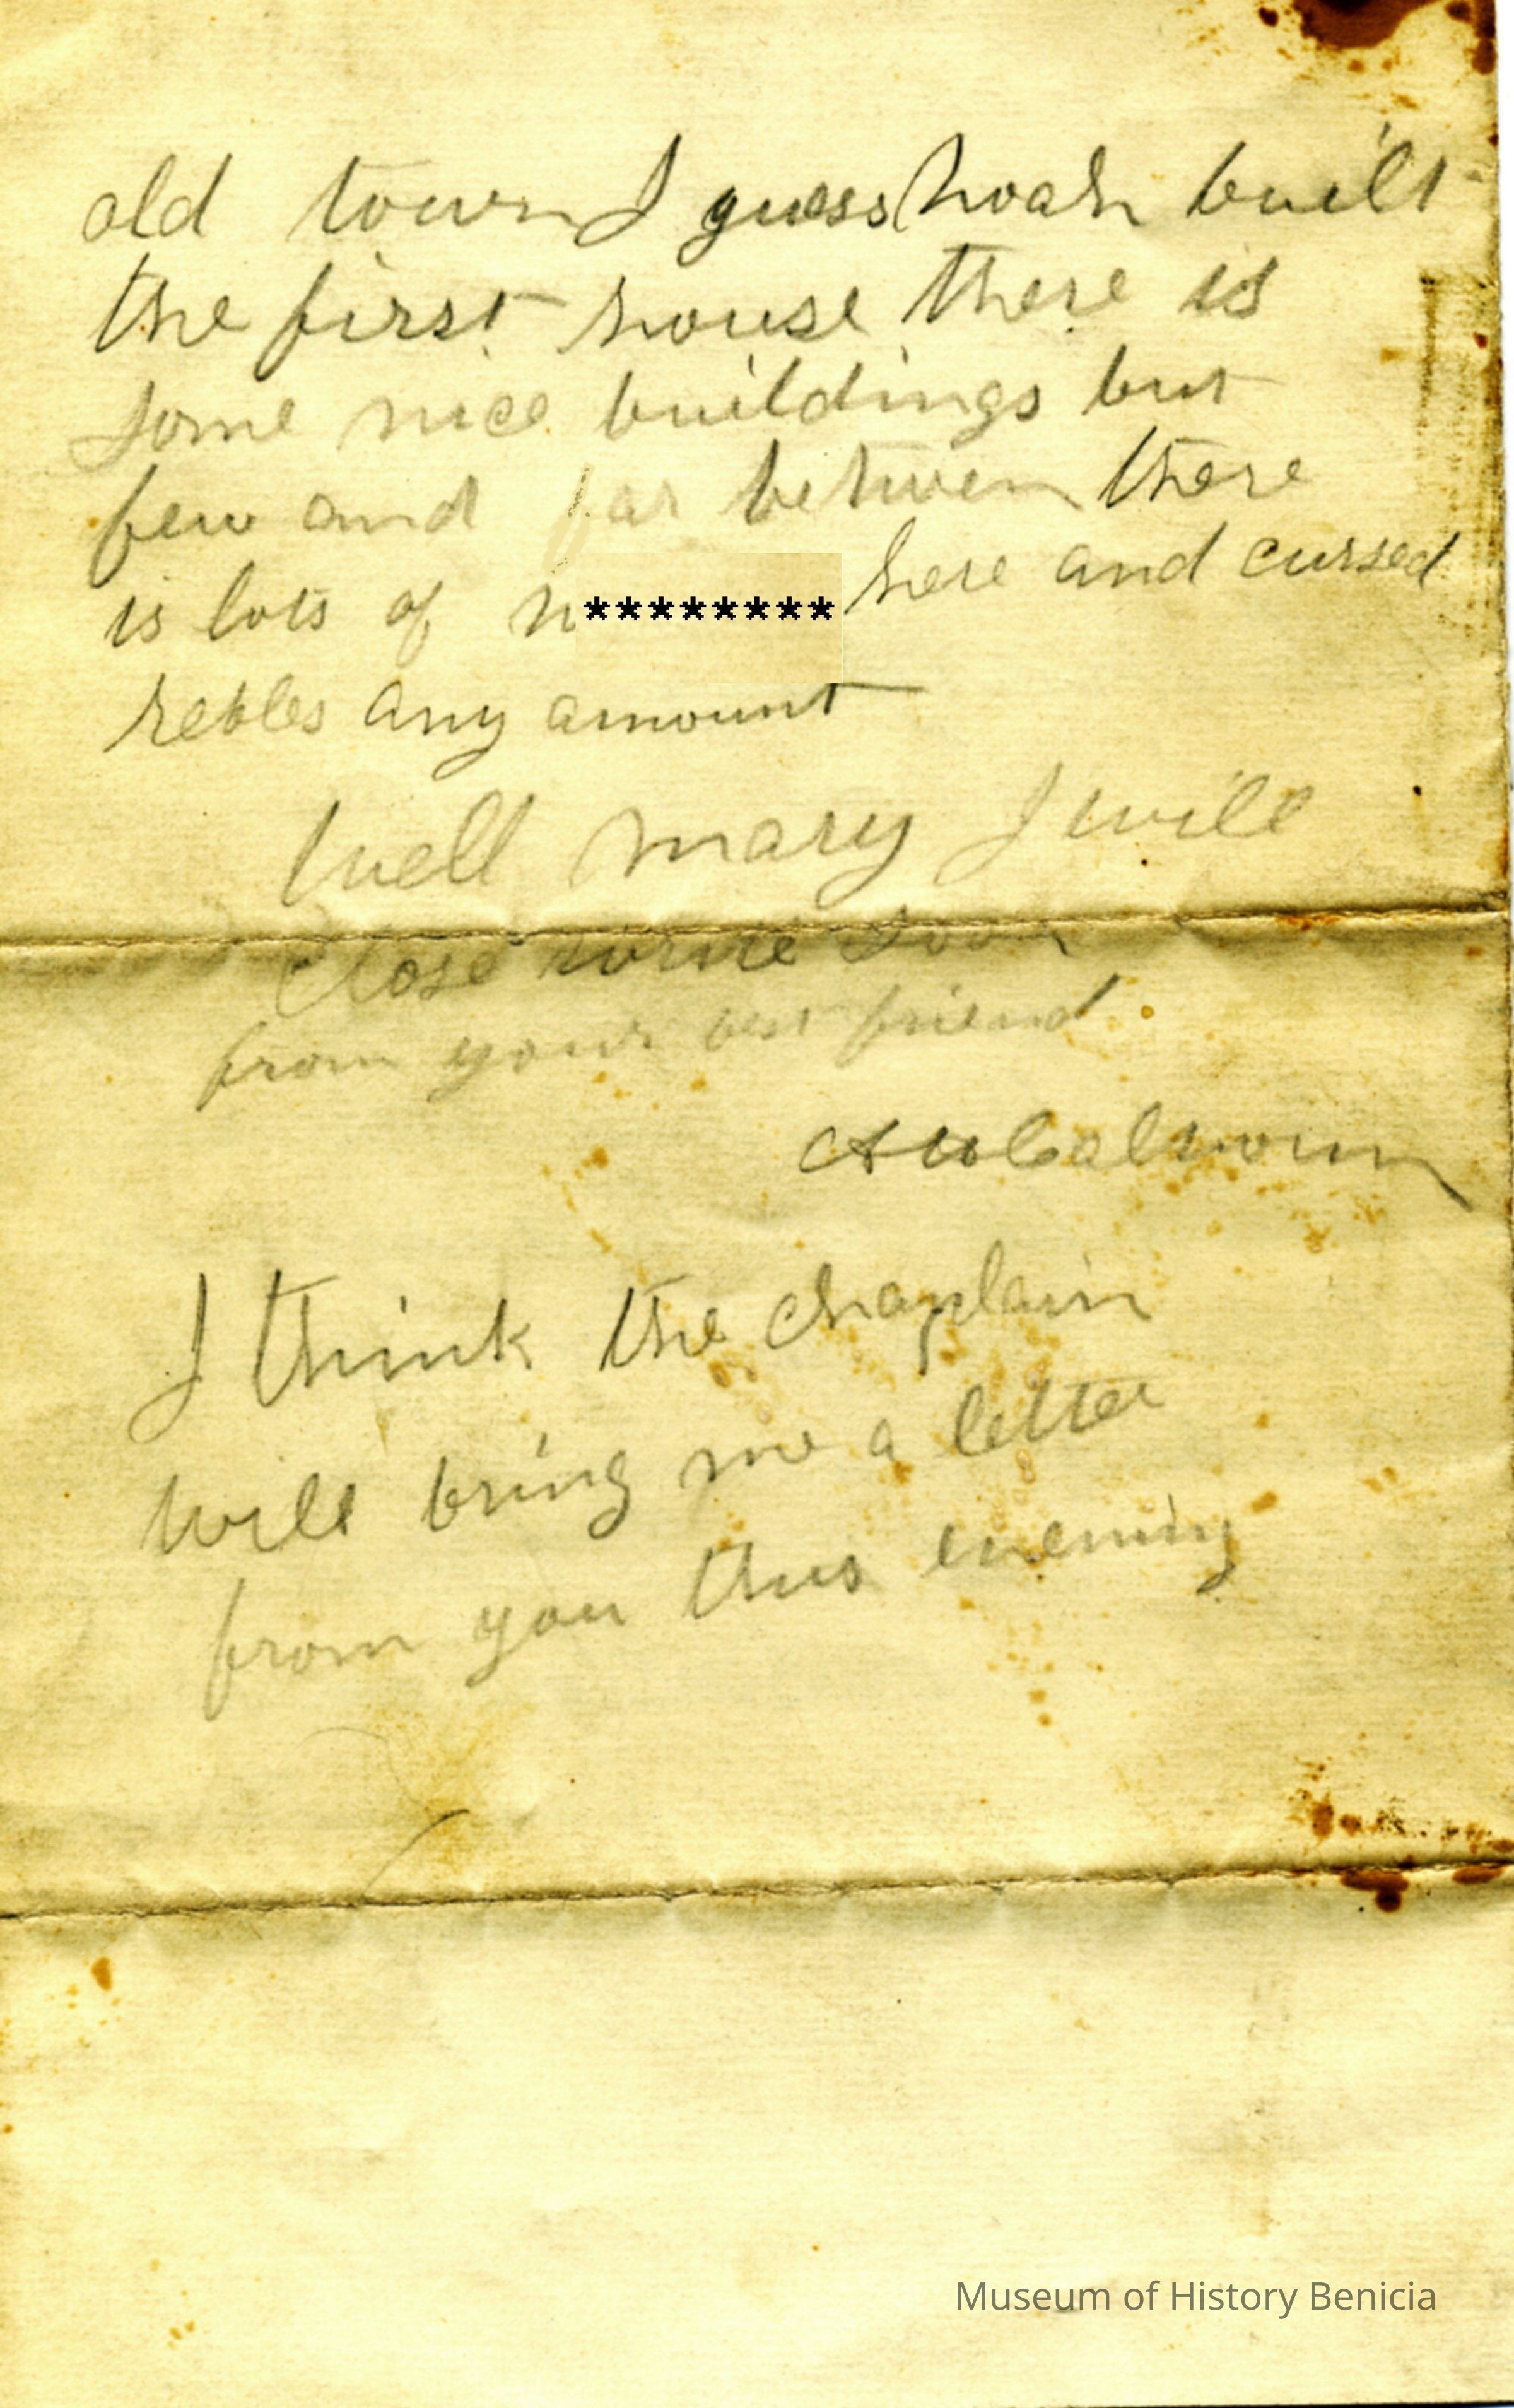 old town I guess Noah built
the first house there is
some nice buildings but
few and far between there
is lots of n******** here and cursed
rebles any amount
Well Mary I will
close write soon
from your best friend
A W Calhoun
I think the chaplain
will bring me a letter
from you this evening
Museum of History Benicia